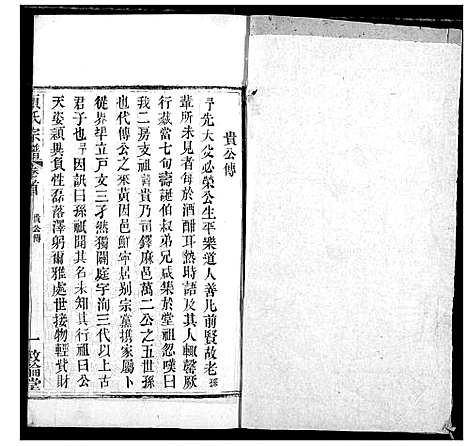 貴公傳
予先大父必榮公生平樂道人善凡前賢故老孫
輩所未見者每於酒酣耳熱時語及其人輒罄厥
行茲當七旬壽誕伯叔弟兄咸集於堂祖忽嘆曰
我二房支祖貴乃司鐸麻邑萬二公之五世孫
也代傳公之來黃因邑鮮寧居別宗黨携家屬卜
從界旱立戶女三孑然獨闢庭宇洵三代以上古
君子也予因訊曰孫祇聞其名未知其行祖曰公
天姿穎異負性磊落渾躬爾雅處世接物輕貲財
氏宗譜 卷首 貴公傳 一 敦倫堂